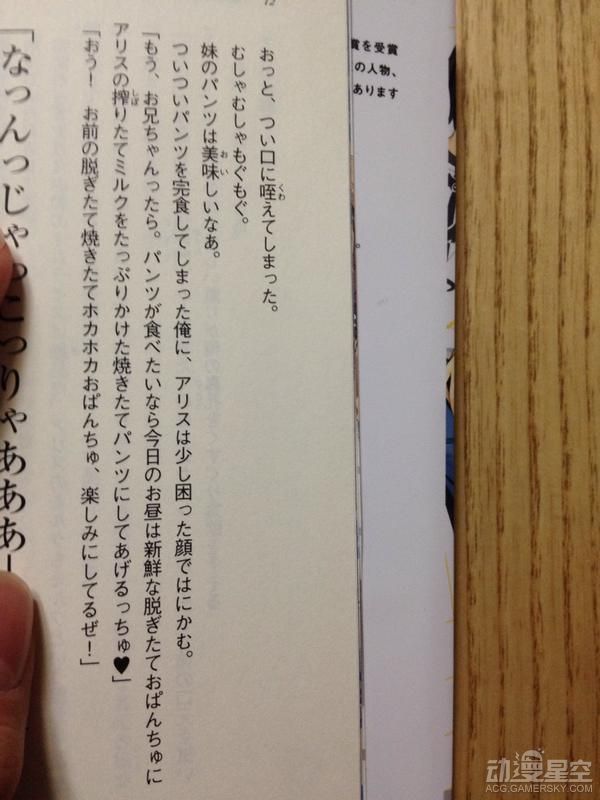 12
おっと、つい口に咥えてしまった。
むしゃむしゃもぐもぐ。
妹のパンツは美味しいなあ。
ついついパンツを完食してしまった俺に、アリスは少し困った顔ではにかむ。
「もう、お兄ちゃんったら。パンツが食べたいなら今日のお昼は新鮮な脱ぎたておぱんちゅに
アリスの搾りたてミルクをたっぷりかけた焼きたてパンツにしてあげるっちゅ♥」
「おう！　お前の脱ぎたて焼きたてホカホカおぱんちゅ、楽しみにしてるぜ！」
「なっんっじゃっこっりゃあああ
賞を受賞
の人物、
あります
动漫星空
ACG.GAMERSKY.COM